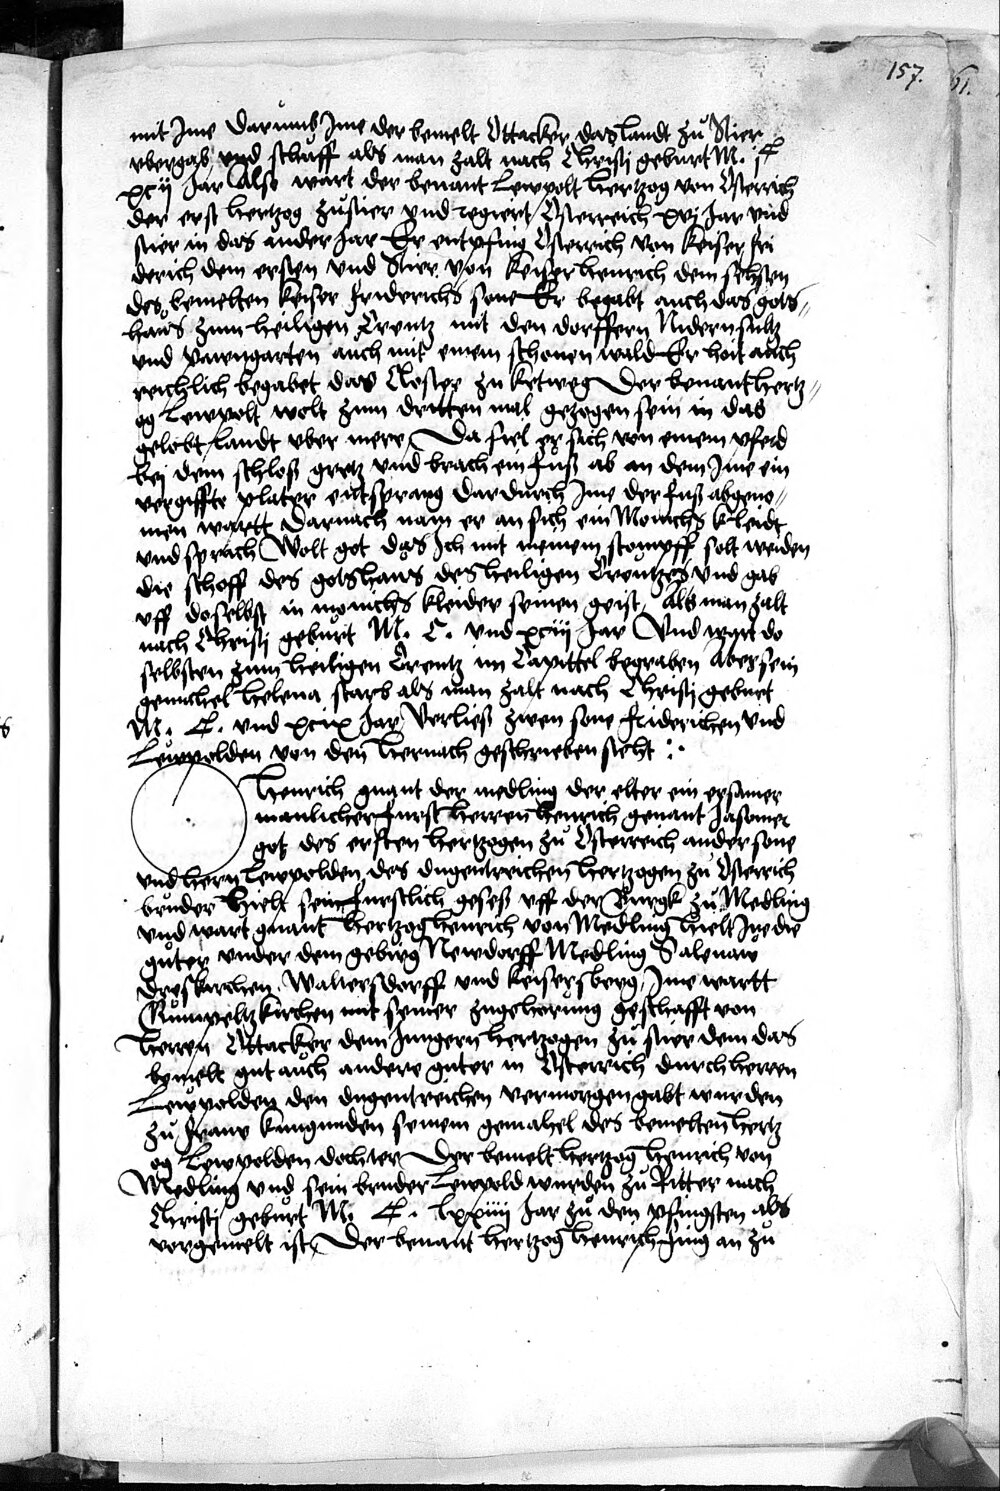 157.
61.
mit Ime Darumb Ime der bemelt Ottacker das landt zu Stier
vbergab vnd schuff als man zalt nach Christj geburt M. C
xcij Jar Also wart der benant Lewpolt hertzog von Osterrich
der erst hertzog zu stier vnd regiert Osterreich xvj Jar vnd
stier in das ander Jar Er entpfing Osterrich von keiser fri
derich dem ersten vnd Stier von keiser henrich dem sehsten
des bemelten keiser friderichs sone Er begabt auch das gots
haus zum heiligen Creutz mit den dorffern Nidern sultz
vnd pawngarten auch mit einem schonen wald Er hoit auch
reichlich begabet das Closter zu ketweg Der benant hertz
og Lewpolt wolt zum dritten mal gezogen sein in das
gelobt landt vber mere Da fiel er sich von einem pferd
bej dem schloß gretz vnd brach ein fuß ab an dem Ime ein
vergiffte plater entsprang dardurch Ime der fuß abgeno
men wartt Darnach nam er an sich ein Monichs kleidt
vnd sprach Wolt got das Ich mit meinem stompff solt weiden
die schoff des gotshaws des heiligen Creutzes vnd gab
vff doselbst in monichs kleider seinen geist Als man zalt
nach Christj geburt M. C. vnd xciiij Jar Vnd wart do
selbsten zum heiligen Creutz im Capittel begraben Aber sein
gemahel helena starb als man zalt nach Christj geburt
M. C. vnd Jar Verließ zwen sone friderichen vnd
Lewpolden von den hernach geschrieben steht :
henrich gnant der medling der elter ein ersamer
manlicher furst herren henrich genant Jasomer
got des ersten hertzogen zu Osterreich ander sone
vnd hern Lewpolden des dugentreichen hertzogen zu Osterrich
bruder hielt sein furstlich geseß vff der Burgk zu Medling
vnd wart gnant hertzog henrich von Medling hielt Ine die
guter vnder dem gebirg Newdorff Medling Salenaw
Dreskirchen Waltersdorff vnd keisersberg Ime wartt
Rumpeltzkirchen mit seiner zugehorung geschafft von
herren Ottacker dem Jungern hertzogen zu stier dem das
bemelt gut auch andere guter in Osterrich durch herren
Lewpolden den dugentreichen vermorgengabt wurden
zu frawe kungunden seinem gemahel des bemelten hertz
og Lewpolden dochter Der bemelt hertzog henrich von
Medling vnd sein bruder Lewpold wurden zu Ritter nach
Christj geburt M. C. lxxiiij Jar zu den pfingsten als
vorgemelt ist Der benant hertzog henrich fing an zu